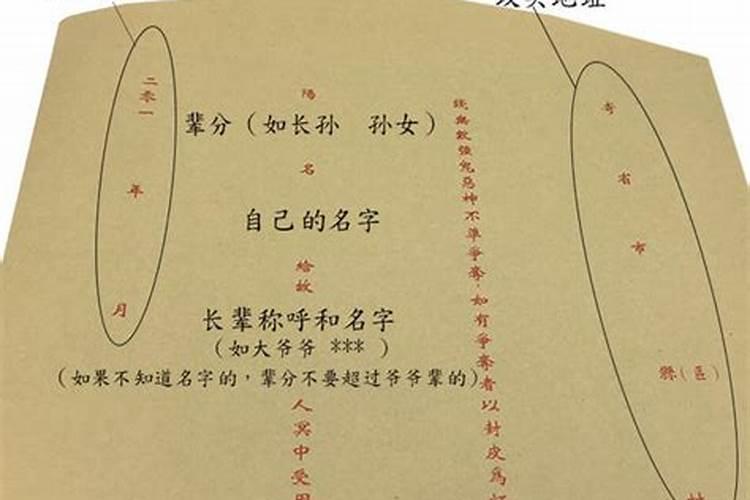 寄 省 市 縣(區)
錢無數強鬼惡神不準爭奪，如有爭奪者以封皮為
陽
辈分（如长孙 孙女）
名
自己的名字
給故
长辈称呼和名字
（如大爷爷 *** ）
（如果不知道名字的，辈分不要超过爷爷辈的）
人冥中受用
二零一 年 月